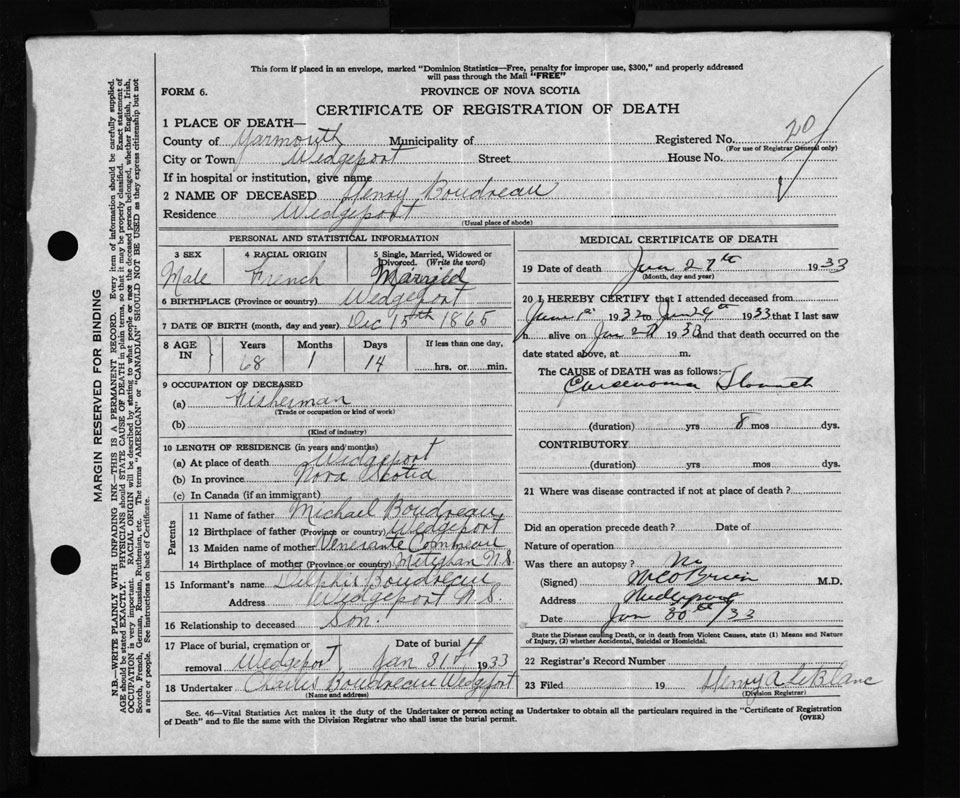 This form if placed in an envelope, marked "Dominion Statistics—Free, penalty for improper use, $300," and properly addressed
will pass through the Mail "FREE"
FORM 6. PROVINCE OF NOVA SCOTIA
CERTIFICATE OF REGISTRATION OF DEATH
1 PLACE OF DEATH—
County of Yarmouth Municipality of Registered No. 20
(For use of Registrar General only)
City or Town Wedgeport Street House No.
If in hospital or institution, give name
2 NAME OF DECEASED Henry Boudreau
Residence Wedgeport
(Usual place of abode)
PERSONAL AND STATISTICAL INFORMATION
3 SEX 4 RACIAL ORIGIN 5 Single, Married, Widowed or
Divorced. (Write the word)
Male French Married
6 BIRTHPLACE (Province or country) Wedgeport
7 DATE OF BIRTH (month, day and year) Dec 15th 1865
8 AGE IN Years Months Days If less than one day,
68 1 14 hrs. or min.
9 OCCUPATION OF DECEASED
(a) Fisherman
(Trade or occupation or kind of work)
(b)
(Kind of industry)
10 LENGTH OF RESIDENCE (in years and months)
(a) At place of death Wedgeport
(b) In province Nova Scotia
(c) In Canada (if an immigrant)
Parents
11 Name of father Michael Boudreau
12 Birthplace of father (Province or country) Wedgeport
13 Maiden name of mother Venerante Comeau
14 Birthplace of mother (Province or country) Meteghan N.S.
15 Informant's name Delphis Boudreau
Address Wedgeport N.S.
16 Relationship to deceased Son.
17 Place of burial, cremation or Date of burial
removal Wedgeport, Jan 31st 1933
18 Undertaker Charles Boudreau Wedgeport
(Name and address)
MEDICAL CERTIFICATE OF DEATH
19 Date of death Jan 27th 1933
(Month, day and year)
20 I HEREBY CERTIFY that I attended deceased from
June 1st 1932 to 1933 that I last saw
h alive on Jan 1933 and that death occurred on the
date stated above, at m.
The CAUSE of DEATH was as follows:—
(duration) yrs 8 mos dys.
CONTRIBUTORY
(duration) yrs mos dys.
21 Where was disease contracted if not at place of death?
Did an operation precede death? Date of
Nature of operation
Was there an autopsy? No
(Signed) O'Brien M.D.
Address Wedgeport
Date Jan 30th/33
State the Disease causing Death, or in death from Violent Causes, state (1) Means and Nature
of Injury, (2) whether Accidental, Suicidal or Homicidal.
22 Registrar's Record Number
23 Filed 19 Henry A LeBlanc
(Division Registrar)
Sec. 46—Vital Statistics Act makes it the duty of the Undertaker or person acting as Undertaker to obtain all the particulars required in the "Certificate of Registration
of Death" and to file the same with the Division Registrar who shall issue the burial permit. (OVER)
MARGIN RESERVED FOR BINDING
N.B.—WRITE PLAINLY WITH UNFADING INK—THIS IS A PERMANENT RECORD. Every item of information should be carefully supplied.
AGE should be stated EXACTLY. PHYSICIANS should STATE CAUSE OF DEATH in plain terms, so that it may be properly classified. Exact statement of
OCCUPATION is very important. RACIAL ORIGIN will be described by stating to what people or race the deceased person belonged, whether English, Irish,
Scotch, French, German, Russian, Ruthenian, etc. The terms "AMERICAN" or "CANADIAN" SHOULD NOT BE USED as they express citizenship but not
a race or people. See instructions on back of Certificate.